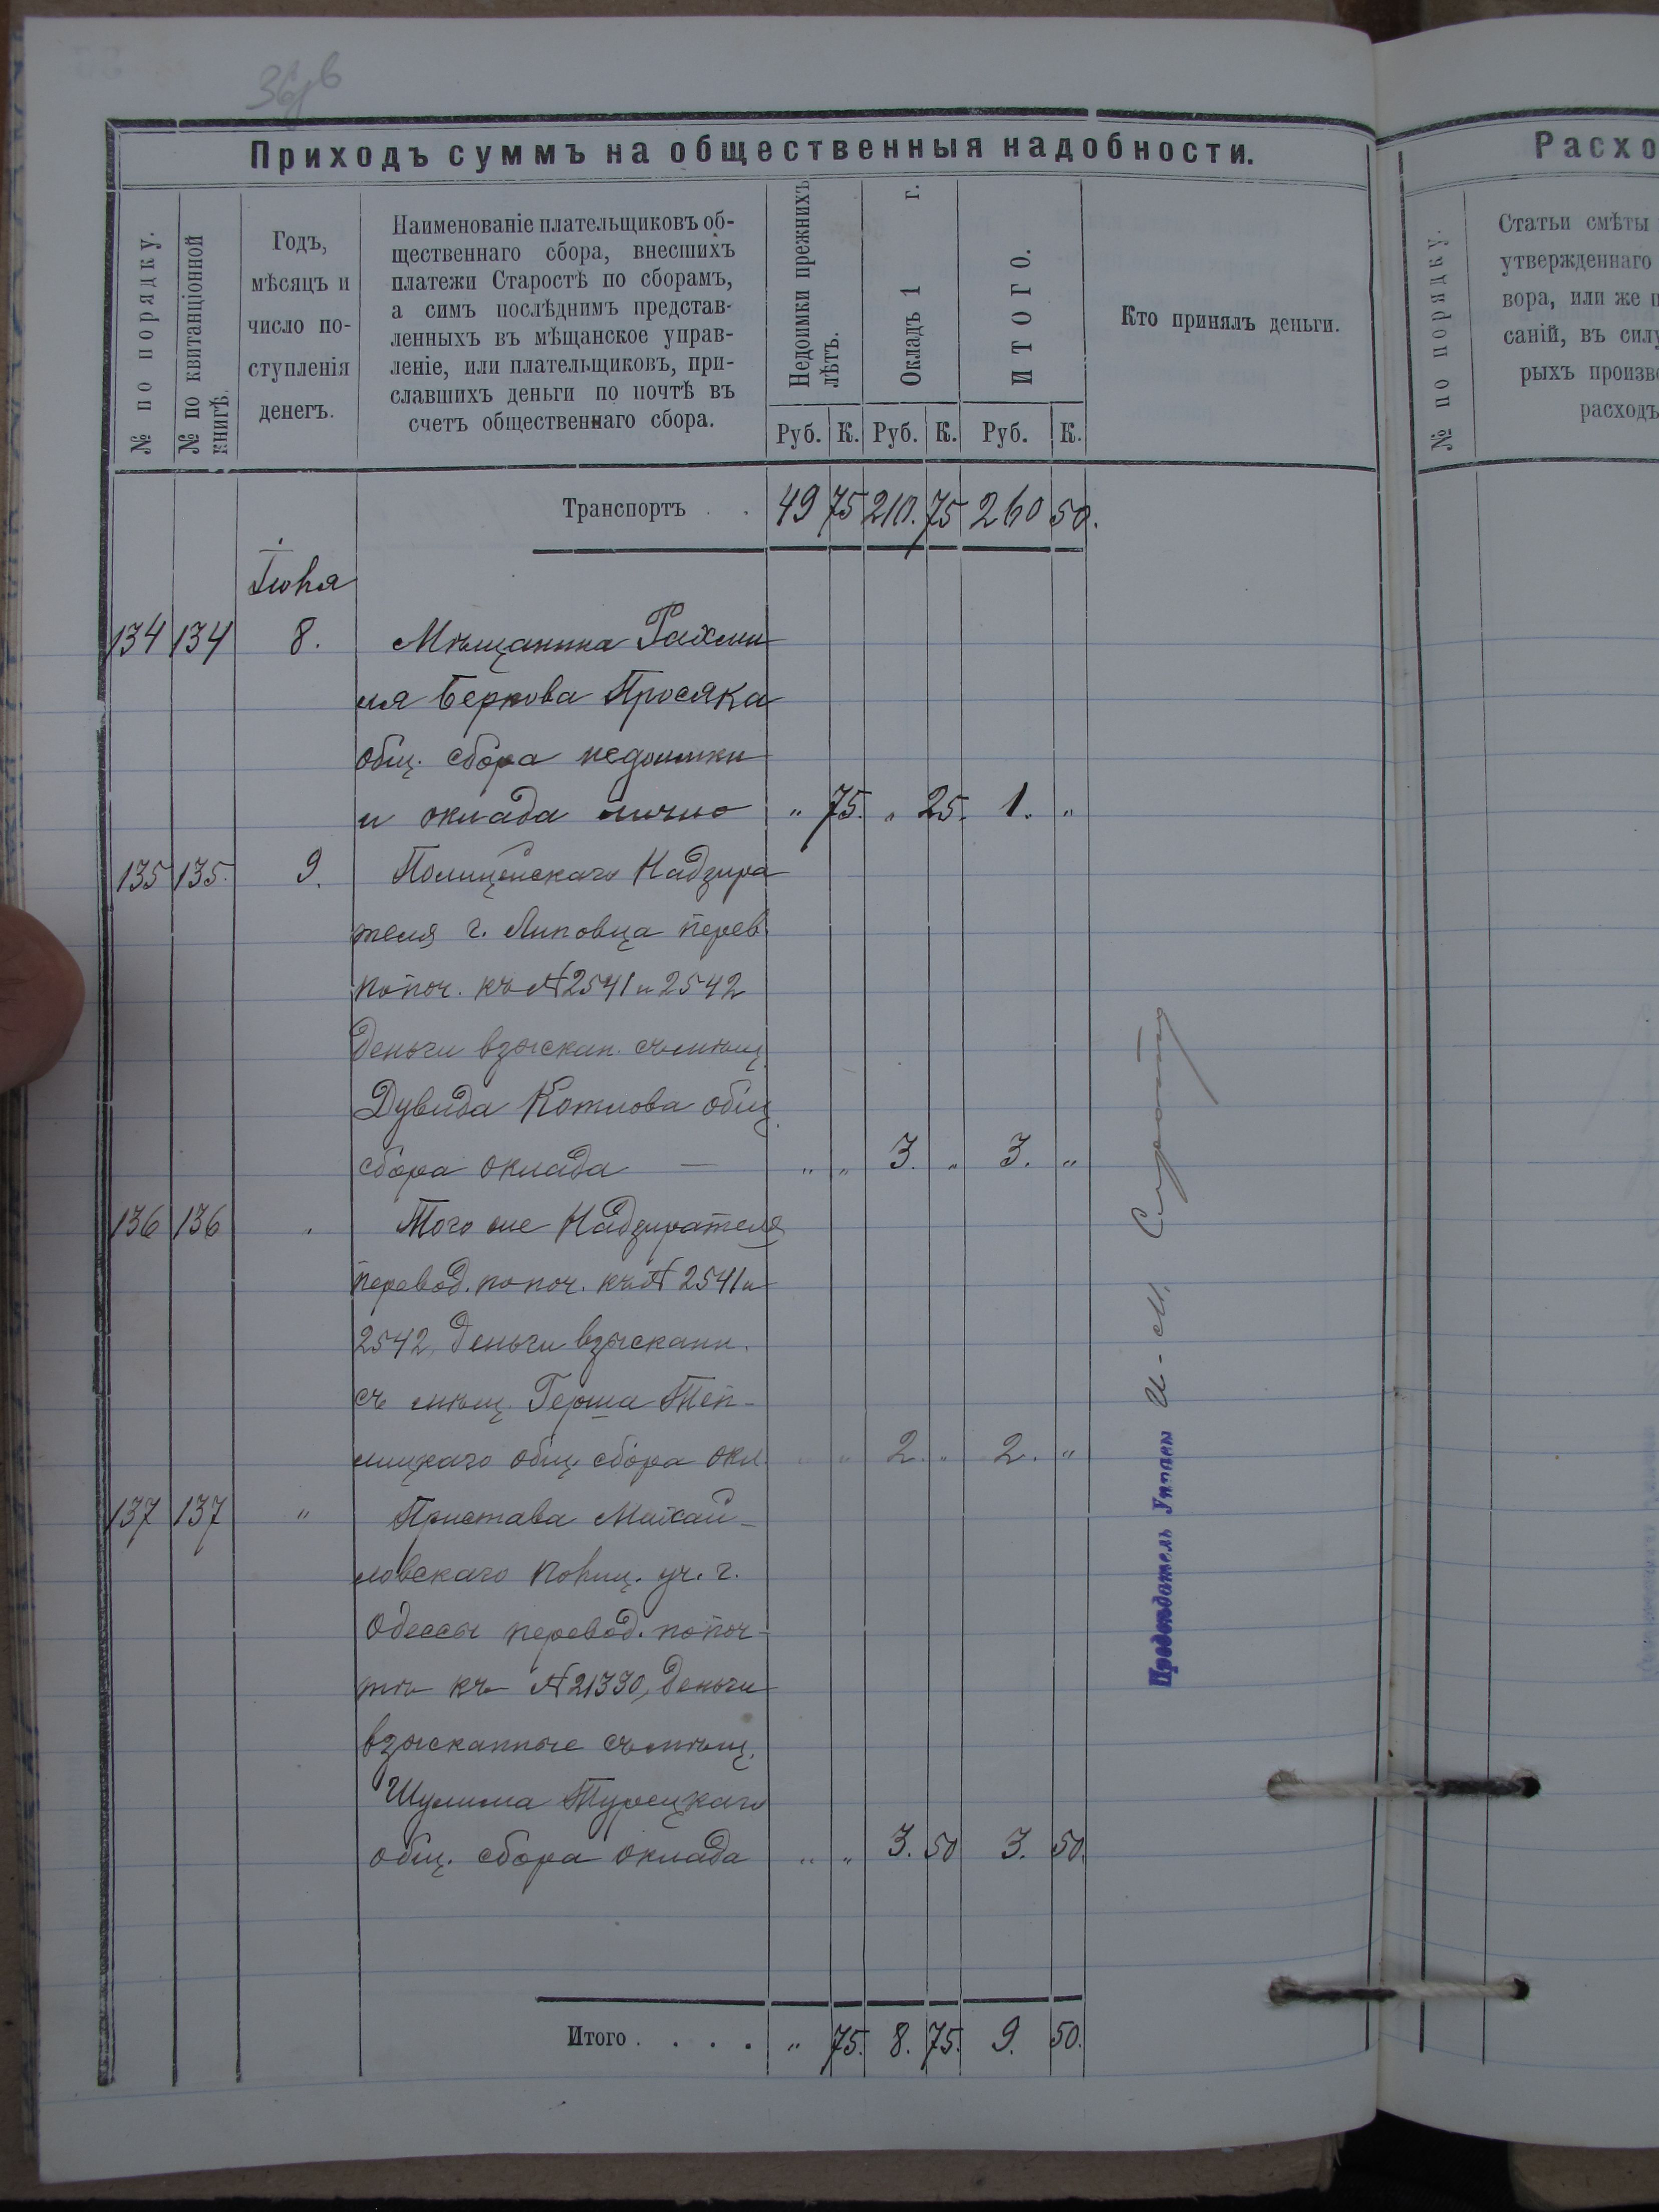 Приходъ суммъ на общественныя надобности.
№ по порядку.
№ по квитанціонной
книгѣ.
Годъ,
мѣсяцъ и
число по-
ступленія
денегъ.
Наименованіе плательщиковъ об-
щественнаго сбора, внесшихъ
платежи Старостѣ по сборамъ,
а симъ послѣднимъ представ-
ленныхъ въ мѣщанское управ-
леніе, или плательщиковъ, при-
славшихъ деньги по почтѣ въ
счетъ общественнаго сбора.
Недоимки прежнихъ
лѣтъ.
Окладъ 1 г.
ИТОГО.
Кто принялъ деньги.
Руб. К. Руб. К. Руб. К.
Транспортъ . . 49 75 210. 75 260 50.
Іюня
134 134 8. Мѣщанина Рахми
ля Беркова Просяка
общ. сбора недоимки
и оклада лично " 75. " 25. 1. "
135 135. 9. Полицейскаго Надзира
теля г. Липовца перев.
по поч. къ № 2541 и 2542
деньги взыскан. съ мѣщ.
Дувида Котлова общ.
сбора оклада — " " 3. " 3. "
136 136 Того же Надзирателя
перевод. по поч. къ № 2541 и
2542, деньги взысканн.
съ мѣщ. Герша Теп-
лицкаго общ. сбора окл. " " 2. " 2. "
137 137 " Пристава Михай-
ловскаго полиц. уч. г.
Одессы перевод. по поч-
тѣ къ № 21330, деньги
взысканные съ мѣщ.
Шулима Турецкаго
общ. сбора оклада " " 3. 50 3. 50.
Итого . . . . " 75. 8. 75. 9. 50.
Предсѣдатель Управы И-М.
Расхо
№ по порядку.
Статьи смѣты
утвержденнаго
вора, или же п
саній, въ силу
рыхъ произве
расходъ